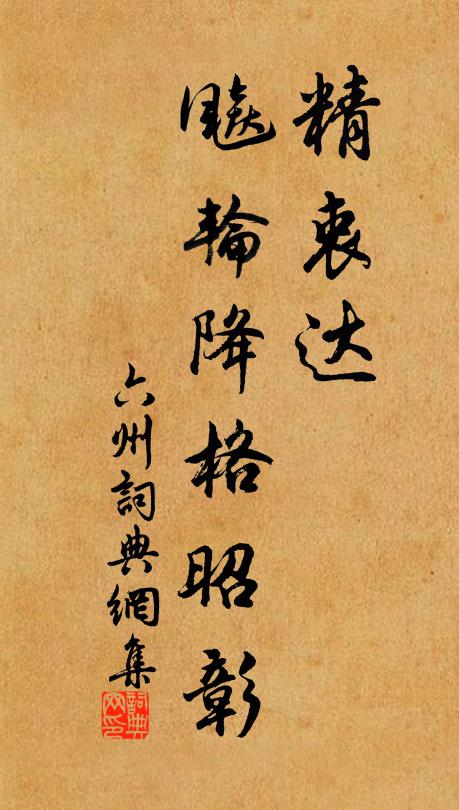 精衷达
飚輪降格昭彰
六州詞典網集
詞典网印